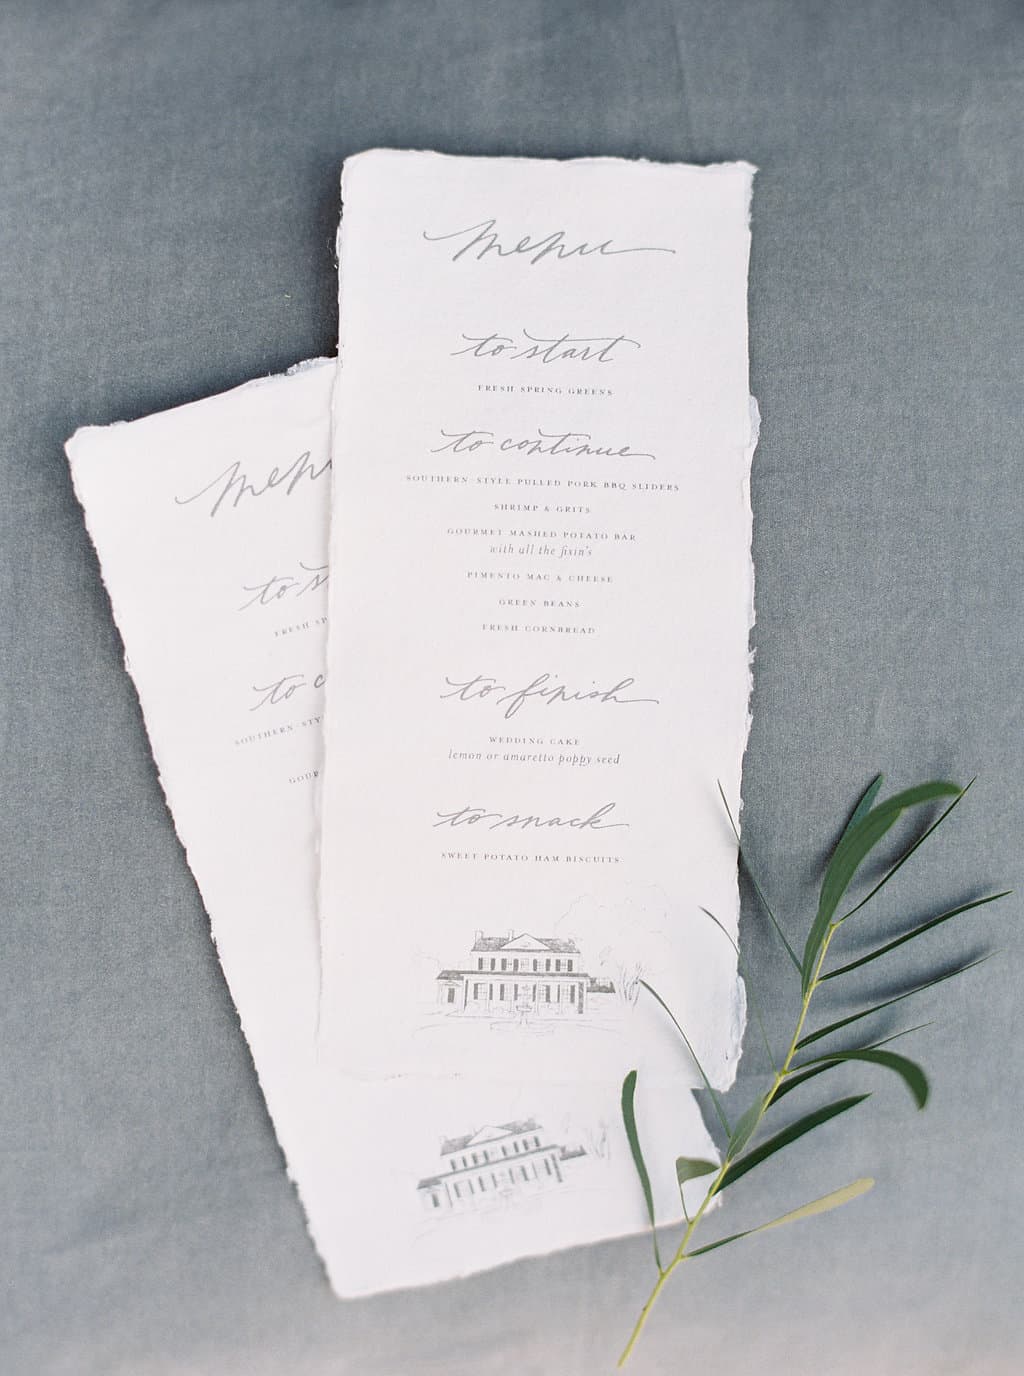 menu
to start
FRESH SPRING GREENS
to continue
SOUTHERN-STYLE PULLED PORK BBQ SLIDERS
SHRIMP & GRITS
GOURMET MASHED POTATO BAR
with all the fixin's
PIMENTO MAC & CHEESE
GREEN BEANS
FRESH CORNBREAD
to finish
WEDDING CAKE
lemon or amaretto poppy seed
to snack
SWEET POTATO HAM BISCUITS
menu
to s
FRESH SP
to c
SOUTHERN-STY
GOUR